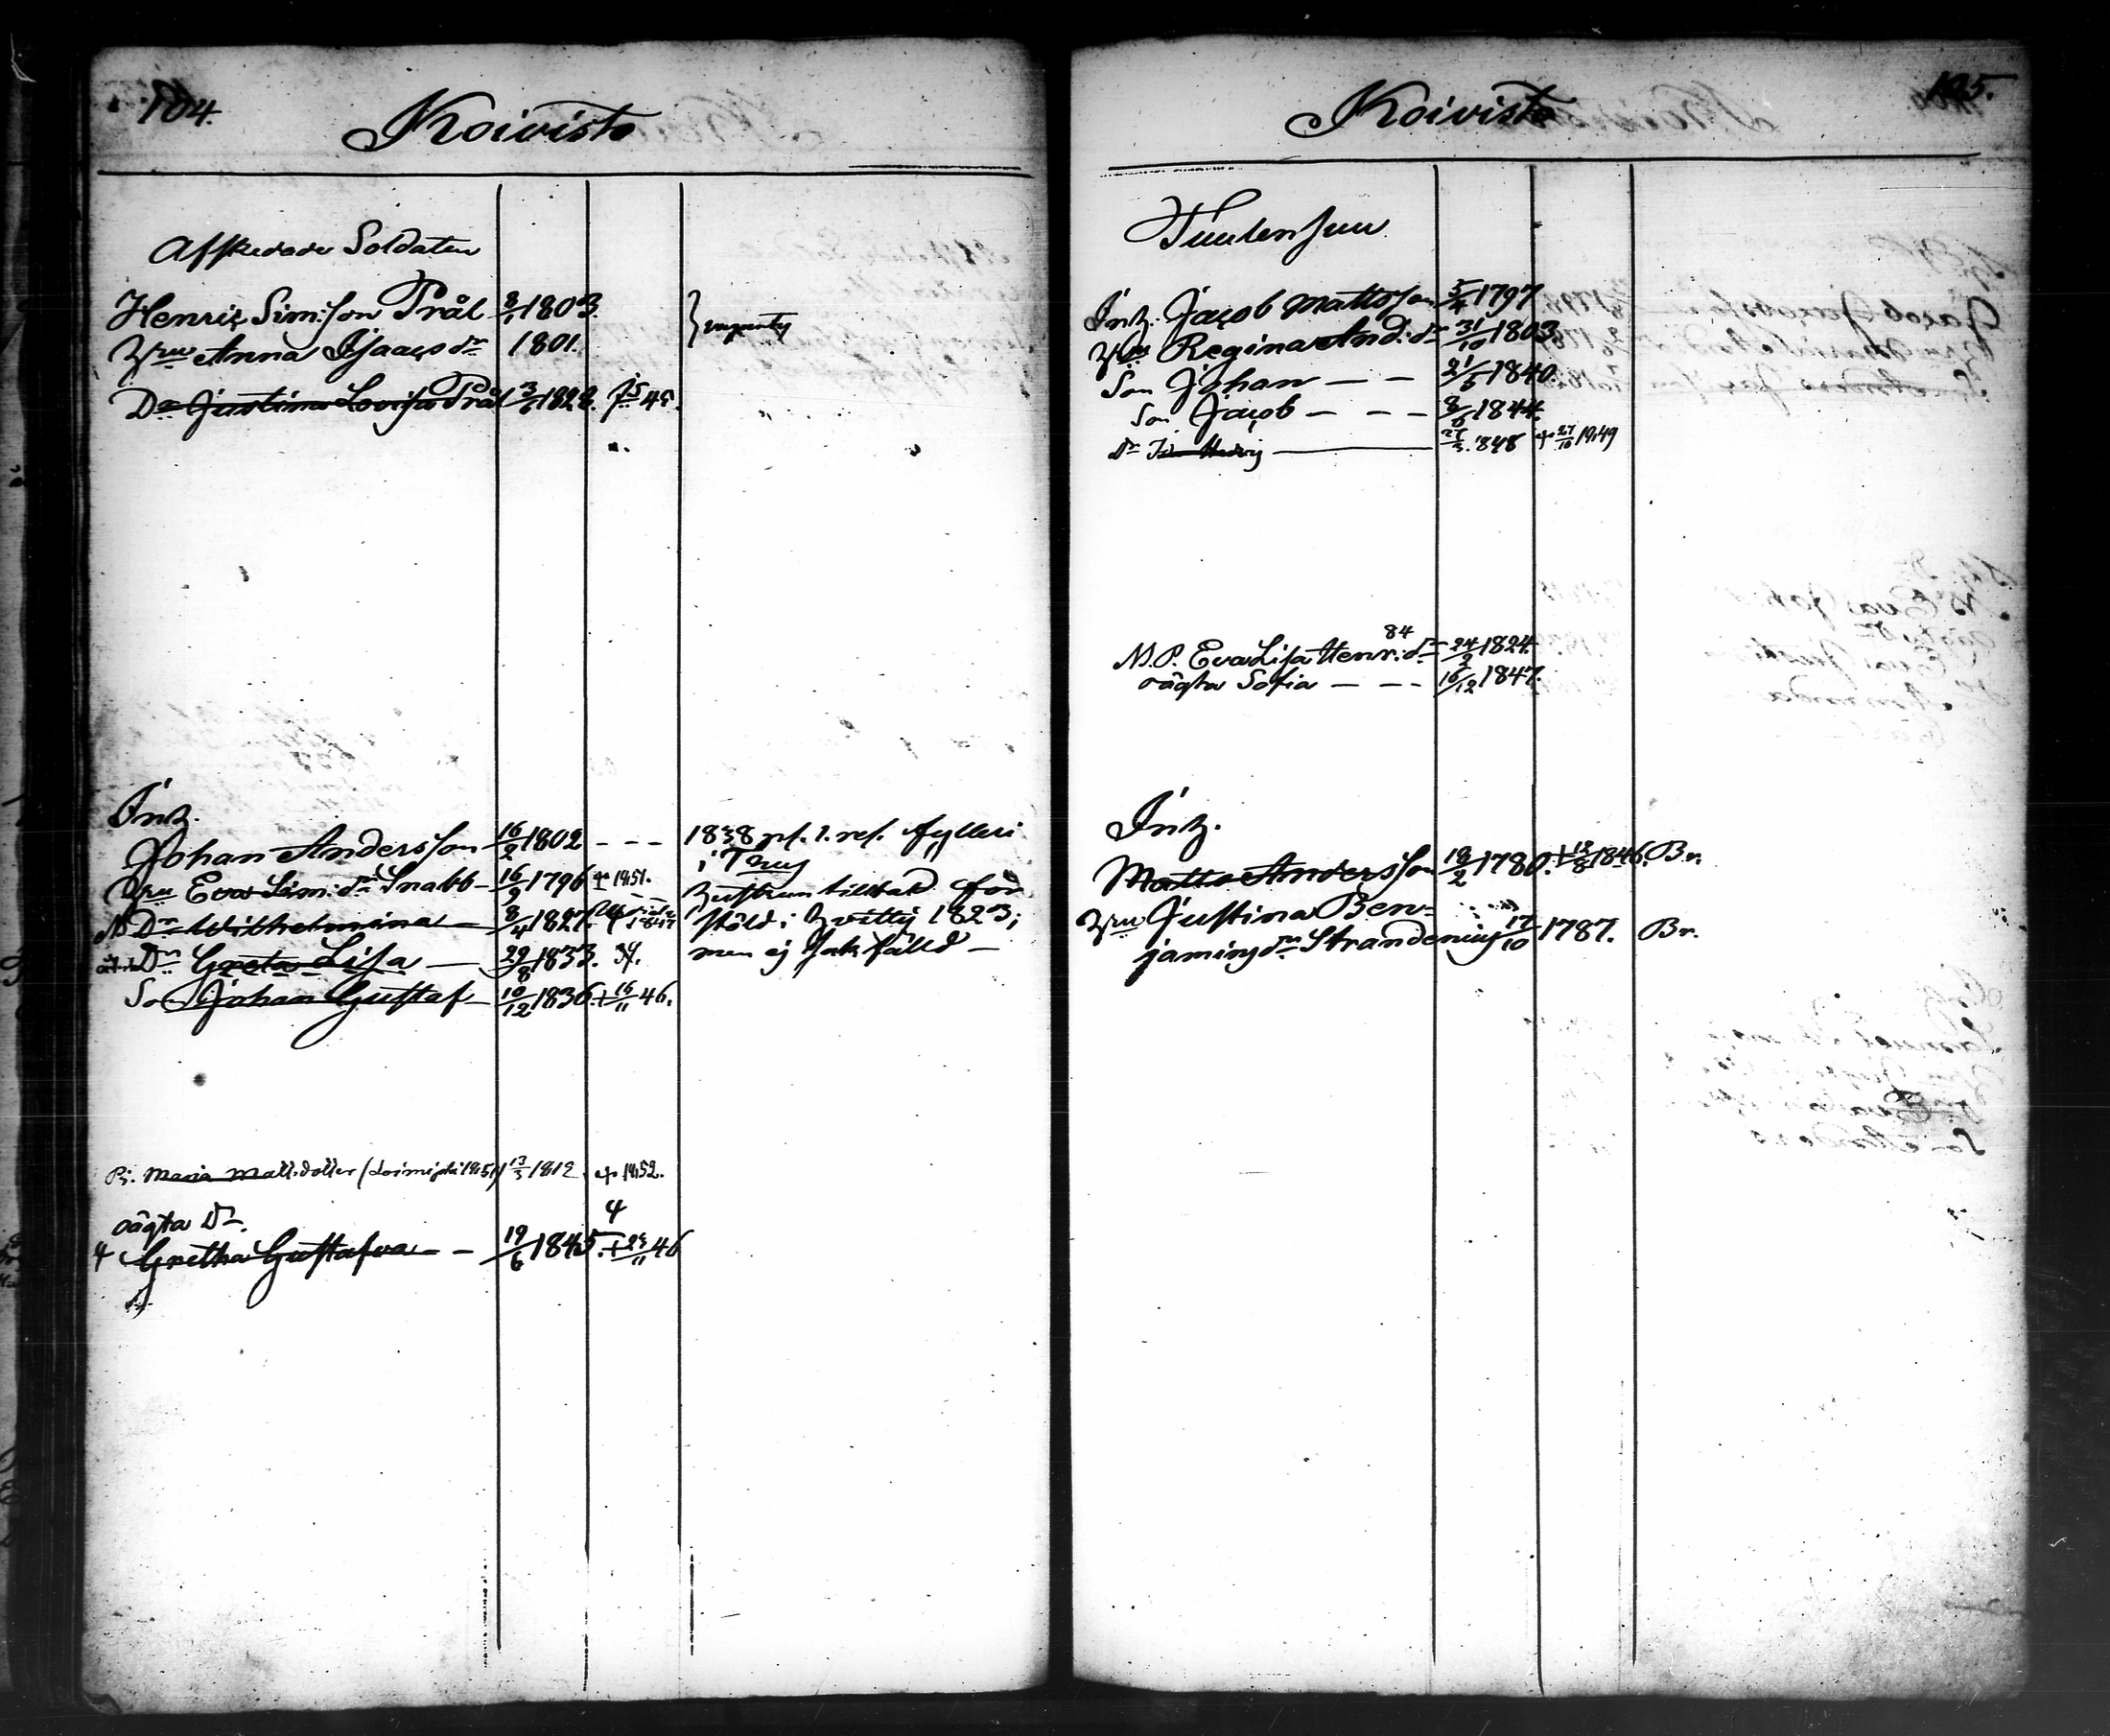 104.
Koivisto
Afskedade Soldaten
Henric Sim:son Prål 3/1 1803.
Hru Anna Isaacs dr 1801.
Dr Justina Lovisa Prål 3/6 1828. 45.
Intz.
Johan Andersson 16/2 1802 - - -
Hru Eva Sim: dr Snabb 16/9 1796 1851.
Dr Wilhelmina 8/4 1827.
Dr Greta Lisa 29/8 1833.
Son Johan Gustaf 10/12 1836. + 16/11 46.
1838 pl. 1. res. fylleri
i
Hustrun tilltal. för
stöld i 1823;
men ej sakfälld
Pi. Maria Matt.dotter 13/3 1812 1852.
oägta Dr.
4
4 Gretha Gustafva 19/6 1845. + 23/11 46
105.
Koivisto
Tuulensuu
Intz. Jacob Mattsson 5/4 1797
Hru Regina And: dr 31/10 1803.
Son Johan - - 21/5 1840.
Son Jacob - - - 8/6 1844.
Dr Hedvig 848 27/10 1849
84
N.P. Eva Lisa Henr: dr 24/2 1824.
oägta Sofia - - - 16/12 1847.
Intz.
Matts Andersson 18/2 1780. + 12/8 1846. Br.
Hru Justina Ben-
jamins dr Strandenius 17/10 1787. Br.